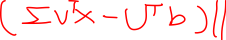 ( Σ Vᵀx − Uᵀb ) ||